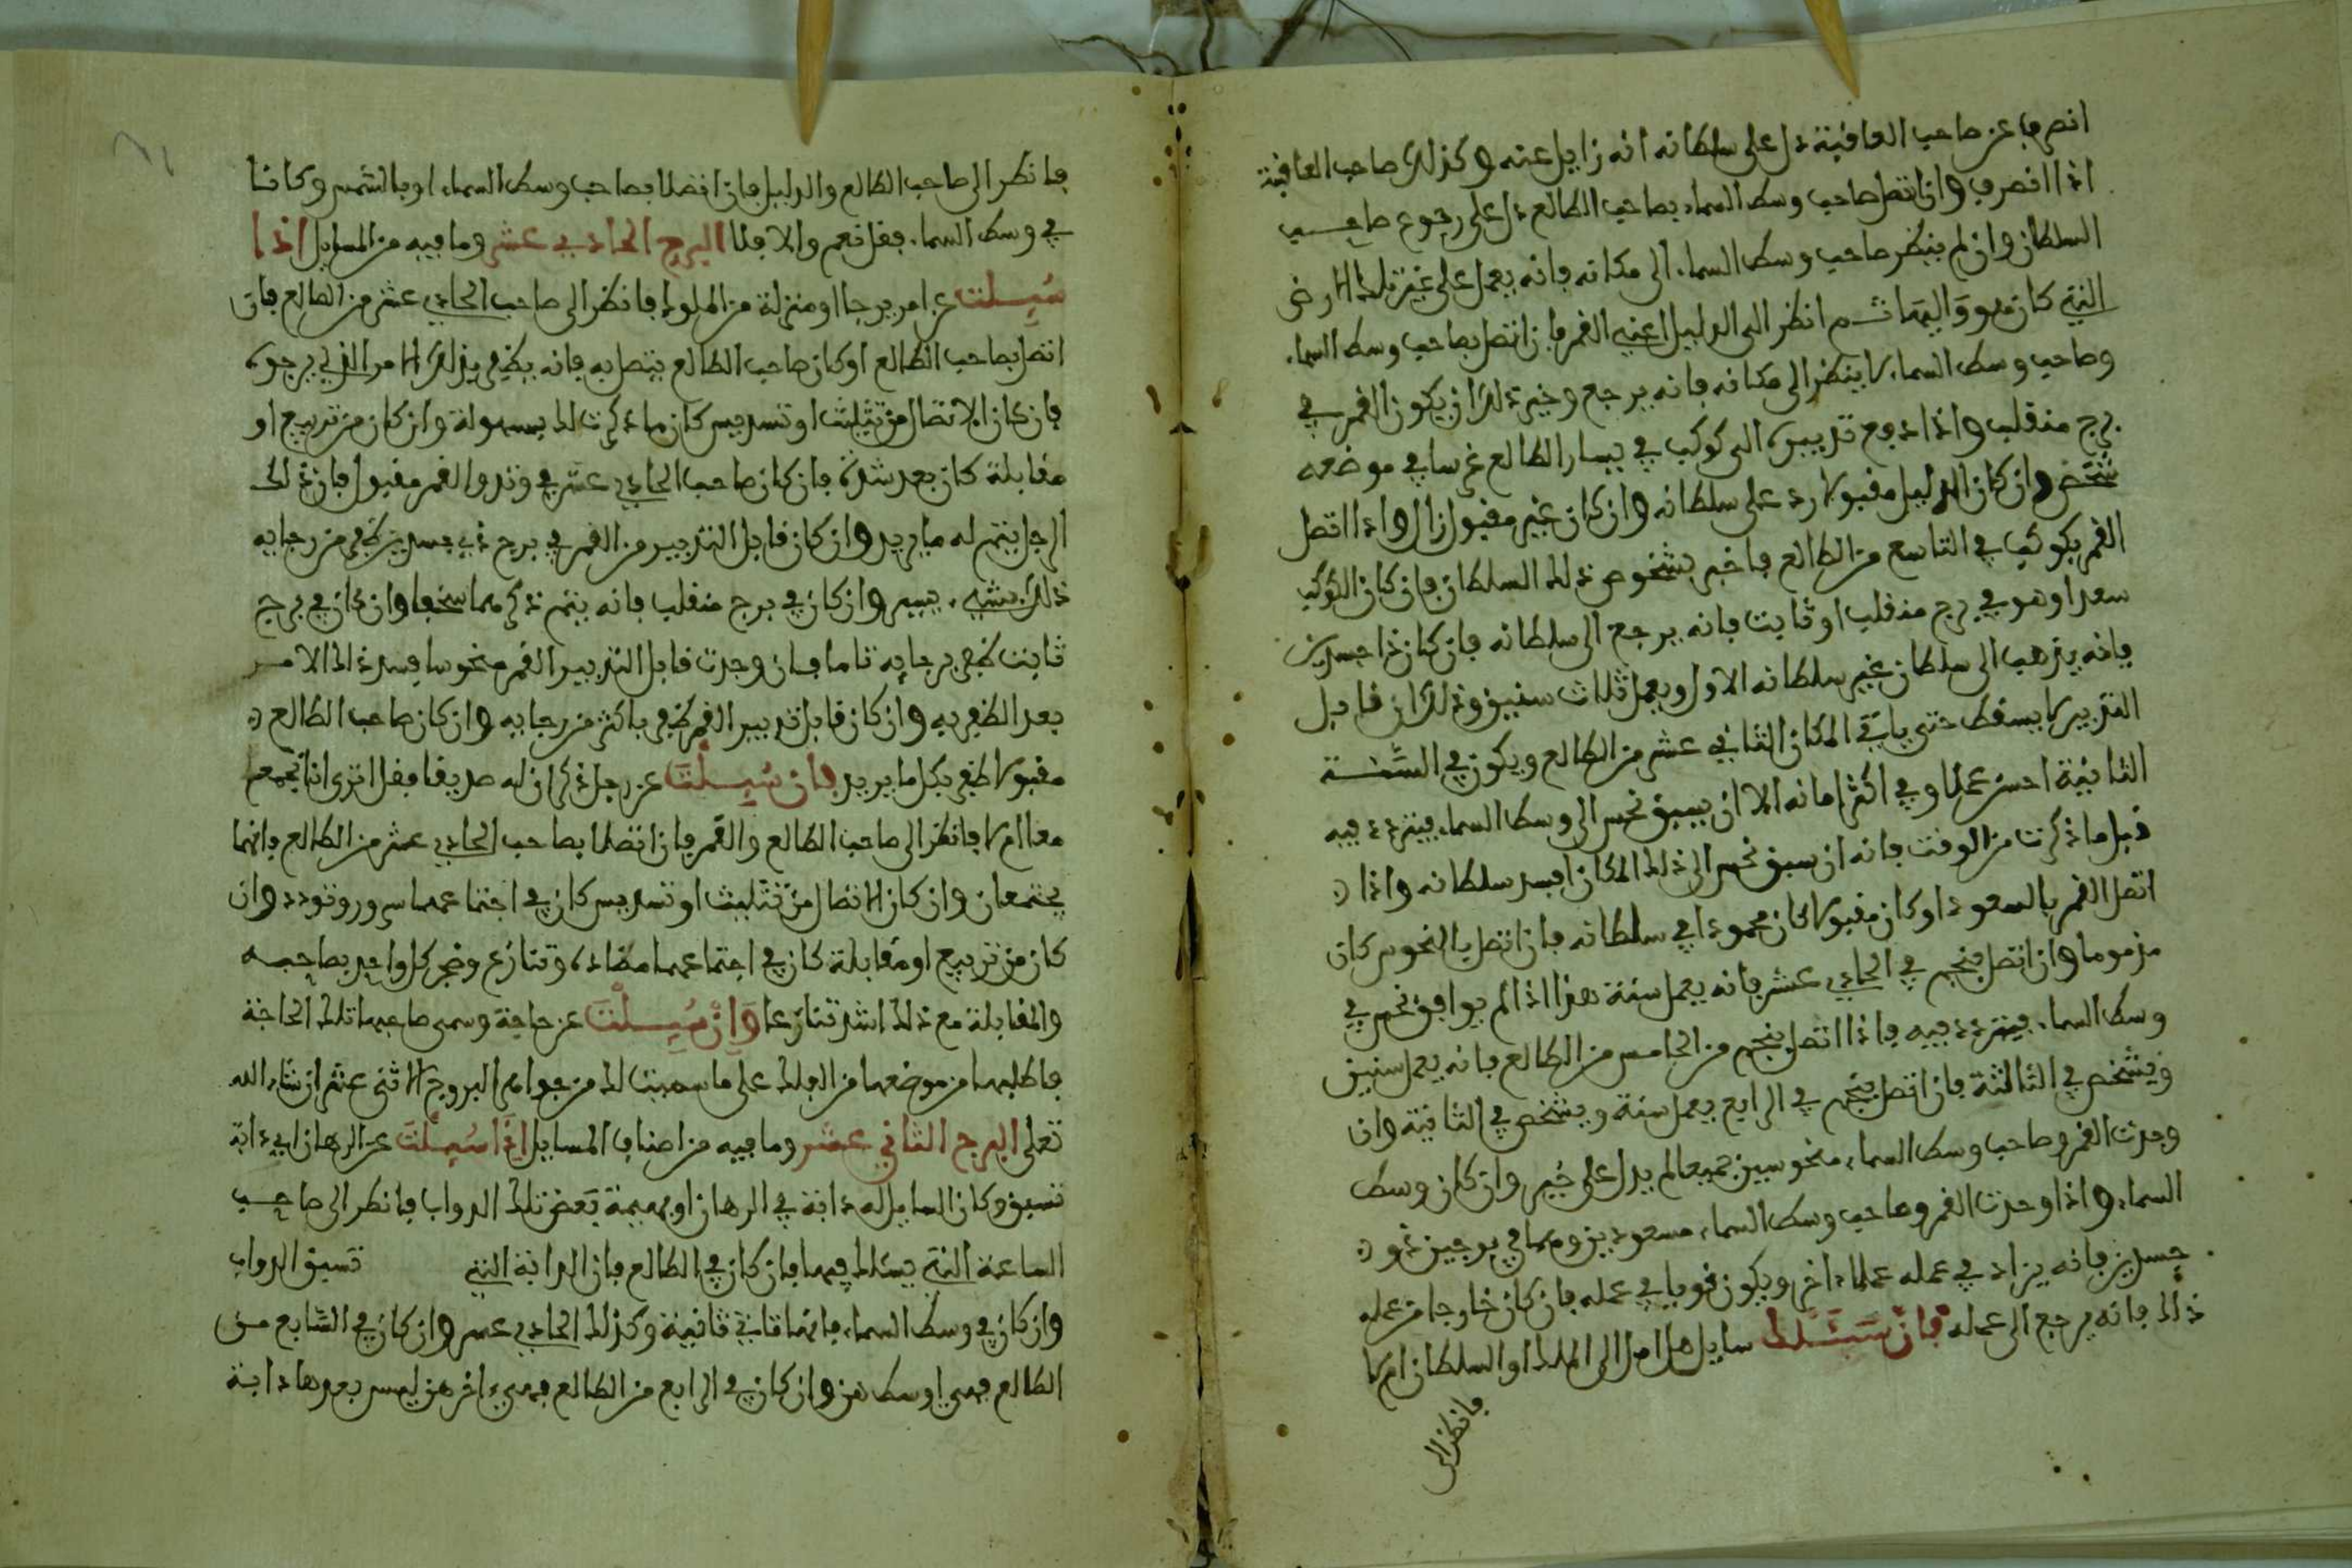 انصرف عن صاحب العاقبة دل على سلطانه انه زايل عنه وكذلك صاحب العاقبة
اذا انصرف وان اتصل صاحب وسط السماء بصاحب الطالع دل على رجوع صاحب
السلطان وان لم ينظر صاحب وسط السماء الى مكانه فانه يعمل على غير تلك الارض
التي كان هو واليها ثم انظر الى الدليل اعني القمر فان اتصل بصاحب وسط السماء
وصاحب وسط السماء لا ينظر الى مكانه فانه يرجع وخير ذلك ان يكون القمر في
برج منقلب واذا دفع تدبيره الى كوكب في يسار الطالع غرسا في موضعه
شخص وان كان الدليل مقبولا رد على سلطانه وان كان غير مقبول زال واذا اتصل
القمر بكوكب في التاسع من الطالع فاخبر بشخوص ذلك السلطان فان كان الكوكب
سعدا وهو في برج منقلب او ثابت فانه يرجع الى سلطانه فان كان ذا جسدين
فانه يذهب الى سلطان غير سلطانه الاول ويعمل ثلاث سنين وذلك ان قابل
التدبير لا يسقط حتى ياتي المكان الثاني عشر من الطالع ويكون في السنة
الثانية احسن عملا وفي اكثر امانه الا ان يسبق نحس الى وسط السماء فيتردد فيه
قبل ما ذكرت من الوقت فانه ان سبق نحس الى ذلك المكان افسد سلطانه واذا
اتصل القمر بالسعود او كان مقبولا كان محمودا في سلطانه فان اتصل بالنحوس كان
مذموما وان اتصل بنجم في الحادي عشر فانه يعمل سنة هذا اذا لم يوافق نجم في
وسط السماء فيتردد فيه فاذا اتصل بنجم من الخامس من الطالع فانه يعمل سنين
ويشخص في الثالثة فان اتصل بنجم في الرابع يعمل سنة ويشخص في الثانية وان
وجدت القمر وصاحب وسط السماء منحوسين جميعا لم يدل على خير وان كان وسط
السماء واذا وجدت القمر وصاحب وسط السماء مسعودين وهما في برجين ذو
جسدين فانه يزاد في عمله عملا اخر ويكون قويا في عمله فان كان خارجا من عمله
ذلك فانه يرجع الى عمله فان سئلك سايل هل امل الى الملك او السلطان ام لا
فانظر الى
فانظر الى صاحب الطالع والدليل فان اتصلا بصاحب وسط السماء او بالشمس وكانتا
في وسط السماء فقل نعم والا فلا البرج الحادي عشر وما فيه من المسايل اذا
سئلت عن امر يرجا او منزلة من الملوك فانظر الى صاحب الحادي عشر من الطالع فان
اتصل بصاحب الطالع او كان صاحب الطالع يتصل به فانه يظفر بذلك الامر الذي يرجوه
فان كان الاتصال من تثليث او تسديس كان ما ذكرت لك بسهولة وان كان من تربيع او
مقابلة كان بعد شدة فان كان صاحب الحادي عشر في وتد والقمر مقبول فان ذلك
الرجل يتم له ما يريد وان كان قابل التدبير من القمر في برج ذي جسدين ظفر من رجايه
ذلك بشيء يسير وان كان في برج منقلب فانه يتم ذكر مما سخفا وان كان في برج
ثابت ظفر برجايه تاما فان وجدت قابل التدبير القمر منحوسا فسد ذلك الامر
بعد الظفر به وان كان قابل تدبير القمر ظفر باكثر من رجايه وان كان صاحب الطالع
مقبولا ظفر بكل ما يريد فان سئلت عن رجل ذكر ان له صديقا فقل اترى انا نجمع
معا ام لا فانظر الى صاحب الطالع والقمر فان اتصلا بصاحب الحادي عشر من الطالع فانهما
يجتمعان وان كان الاتصال من تثليث او تسديس كان في اجتماعهما سرور وتودد وان
كان من تربيع او مقابلة كان في اجتماعهما مضادة وتنازع وضجر كل واحد بصاحبه
والمقابلة مع ذلك اشد تنازعا وان سئلت عن حاجة وسمى صاحبها تلك الحاجة
فاطلبها من موضعها من الفلك على ما سميت لك من جواهر البروج الاثنى عشر ان شاء الله
تعلى البرج الثاني عشر وما فيه من اصناف المسايل اذا سئلت عن الرهان اي دابة
تسبق وكان السايل له دابة في الرهان او بهيمة بعض تلك الدواب فانظر الى صاحب
الساعة التي يسئلك فيها فان كان في الطالع فان الدابة التي تسبق الدواب
وان كان في وسط السماء فانها تاتي ثانية وكذلك الحادي عشر وان كان في السابع من
الطالع فهي اوسطهن وان كان في الرابع من الطالع فهي اخرهن ليس بعدها دابة